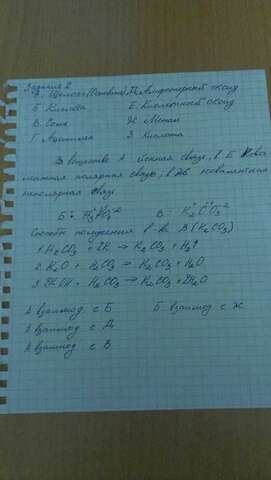 Задание 2
А. Щелочь (Основание) Д. Амфотерный оксид
Б. Кислота Е. Кислотный оксид
В. Соль Ж. Металл
Г. З. Кислота
В веществе А ионная связь, в Б
полярная связь, в
полярная связь
В = K₂⁺C⁺⁴O₃⁻²
Способы получения в-ва В (K₂CO₃)
1. H₂CO₃ + 2K → K₂CO₃ + H₂↑
2. K₂O + H₂CO₃ → K₂CO₃ + H₂O
3. 2KOH + H₂CO₃ → K₂CO₃ + 2H₂O
А взаимод. с Б Б взаимод. с Ж
А взаимод. с Д
А взаимод. с В